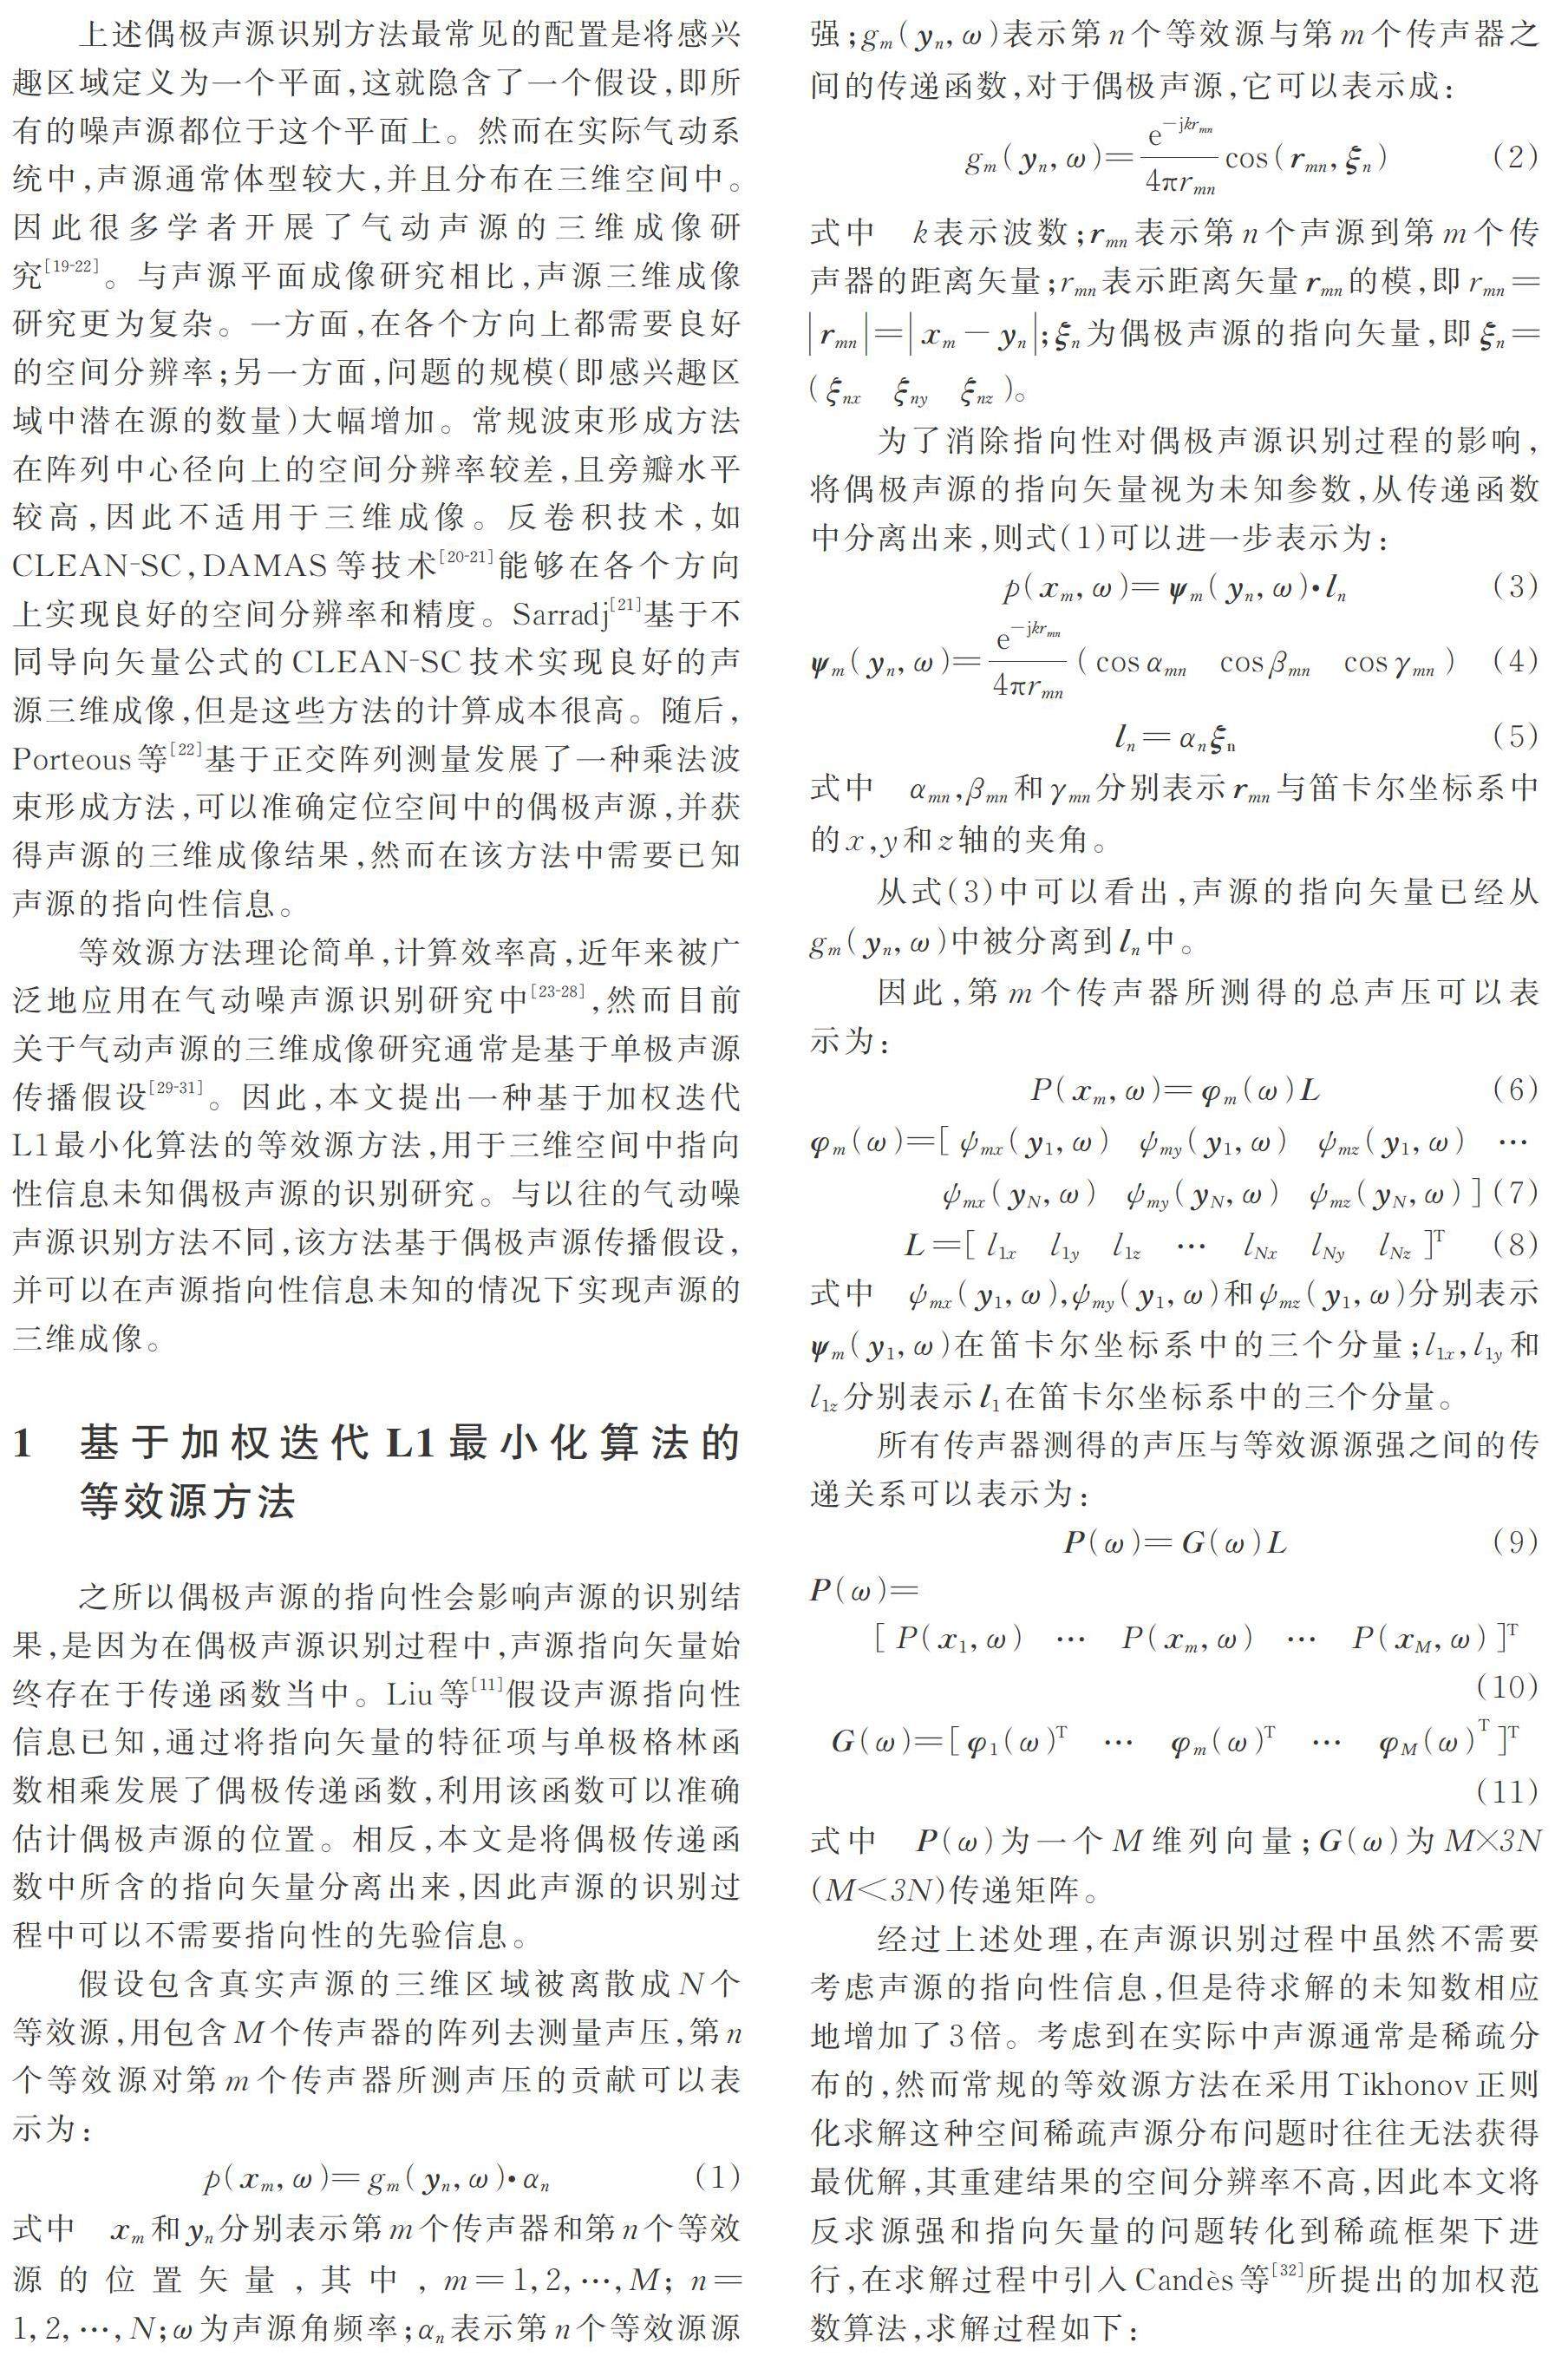 上述偶极声源识别方法最常见的配置是将感兴
趣区域定义为一个平面,这就隐含了一个假设,即所
有的噪声源都位于这个平面上。然而在实际气动系
统中,声源通常体型较大,并且分布在三维空间中。
因此很多学者开展了气动声源的三维成像研
究[19-22]。与声源平面成像研究相比,声源三维成像
研究更为复杂。一方面,在各个方向上都需要良好
的空间分辨率;另一方面,问题的规模(即感兴趣区
域中潜在源的数量)大幅增加。常规波束形成方法
在阵列中心径向上的空间分辨率较差,且旁瓣水平
较高,因此不适用于三维成像。反卷积技术,如
CLEAN-SC,DAMAS等技术[20-21]能够在各个方向
上实现良好的空间分辨率和精度。Sarradj[21]基于不
同导向矢量公式的CLEAN-SC技术实现良好的声
源三维成像,但是这些方法的计算成本很高。随后,
Porteous等[22]基于正交阵列测量发展了一种乘法波
束形成方法,可以准确定位空间中的偶极声源,并获
得声源的三维成像结果,然而在该方法中需要已知
声源的指向性信息。
等效源方法理论简单,计算效率高,近年来被广
泛地应用在气动噪声源识别研究中[23-28],然而目前
关于气动声源的三维成像研究通常是基于单极声源
传播假设[29-31]。因此,本文提出一种基于加权迭代
L1最小化算法的等效源方法,用于三维空间中指向
性信息未知偶极声源的识别研究。与以往的气动噪
声源识别方法不同,该方法基于偶极声源传播假设,
并可以在声源指向性信息未知的情况下实现声源的
三维成像。
1 基于加权迭代L1最小化算法的
等效源方法
之所以偶极声源的指向性会影响声源的识别结
果,是因为在偶极声源识别过程中,声源指向矢量始
终存在于传递函数当中。Liu等[11]假设声源指向性
信息已知,通过将指向矢量的特征项与单极格林函
数相乘发展了偶极传递函数,利用该函数可以准确
估计偶极声源的位置。相反,本文是将偶极传递函
数中所含的指向矢量分离出来,因此声源的识别过
程中可以不需要指向性的先验信息。
假设包含真实声源的三维区域被离散成N个
等效源,用包含M个传声器的阵列去测量声压,第n
个等效源对第m个传声器所测声压的贡献可以表
示为:
p(x_m,ω)=g_m(y_n,ω)•α_n (1)
式中 x_m和y_n分别表示第m个传声器和第n个等效
源的位置矢量,其中,m=1,2,…,M;n=
1,2,…,N;ω为声源角频率;α_n表示第n个等效源源
强;g_m(y_n,ω)表示第n个等效源与第m个传声器之
间的传递函数,对于偶极声源,它可以表示成:
g_m(y_n,ω)=e^{-jkr_{mn}}/(4πr_{mn}) cos(r_{mn},ξ_n) (2)
式中 k表示波数;r_{mn}表示第n个声源到第m个传
声器的距离矢量;r_{mn}表示距离矢量r_{mn}的模,即r_{mn}=
|r_{mn}|=|x_m-y_n|;ξ_n为偶极声源的指向矢量,即ξ_n=
(ξ_{nx} ξ_{ny} ξ_{nz})。
为了消除指向性对偶极声源识别过程的影响,
将偶极声源的指向矢量视为未知参数,从传递函数
中分离出来,则式(1)可以进一步表示为:
p(x_m,ω)=ψ_m(y_n,ω)•l_n (3)
ψ_m(y_n,ω)=e^{-jkr_{mn}}/(4πr_{mn}) (cosα_{mn} cosβ_{mn} cosγ_{mn}) (4)
l_n=α_nξ_n (5)
式中 α_{mn},β_{mn}和γ_{mn}分别表示r_{mn}与笛卡尔坐标系中
的x,y和z轴的夹角。
从式(3)中可以看出,声源的指向矢量已经从
g_m(y_n,ω)中被分离到l_n中。
因此,第m个传声器所测得的总声压可以表
示为:
P(x_m,ω)=φ_m(ω)L (6)
φ_m(ω)=[ψ_{mx}(y_1,ω) ψ_{my}(y_1,ω) ψ_{mz}(y_1,ω) …
ψ_{mx}(y_N,ω) ψ_{my}(y_N,ω) ψ_{mz}(y_N,ω)] (7)
L=[l_{1x} l_{1y} l_{1z} … l_{Nx} l_{Ny} l_{Nz}]^T (8)
式中 ψ_{mx}(y_1,ω),ψ_{my}(y_1,ω)和ψ_{mz}(y_1,ω)分别表示
ψ_m(y_1,ω)在笛卡尔坐标系中的三个分量;l_{1x},l_{1y}和
l_{1z}分别表示l_1在笛卡尔坐标系中的三个分量。
所有传声器测得的声压与等效源源强之间的传
递关系可以表示为:
P(ω)=G(ω)L (9)
P(ω)=
[P(x_1,ω) … P(x_m,ω) … P(x_M,ω)]^T
(10)
G(ω)=[φ_1(ω)^T … φ_m(ω)^T … φ_M(ω)^T]^T
(11)
式中 P(ω)为一个M维列向量;G(ω)为M×3N
(M<3N)传递矩阵。
经过上述处理,在声源识别过程中虽然不需要
考虑声源的指向性信息,但是待求解的未知数相应
地增加了3倍。考虑到在实际中声源通常是稀疏分
布的,然而常规的等效源方法在采用Tikhonov正则
化求解这种空间稀疏声源分布问题时往往无法获得
最优解,其重建结果的空间分辨率不高,因此本文将
反求源强和指向矢量的问题转化到稀疏框架下进
行,在求解过程中引入Candès等[32]所提出的加权范
数算法,求解过程如下: